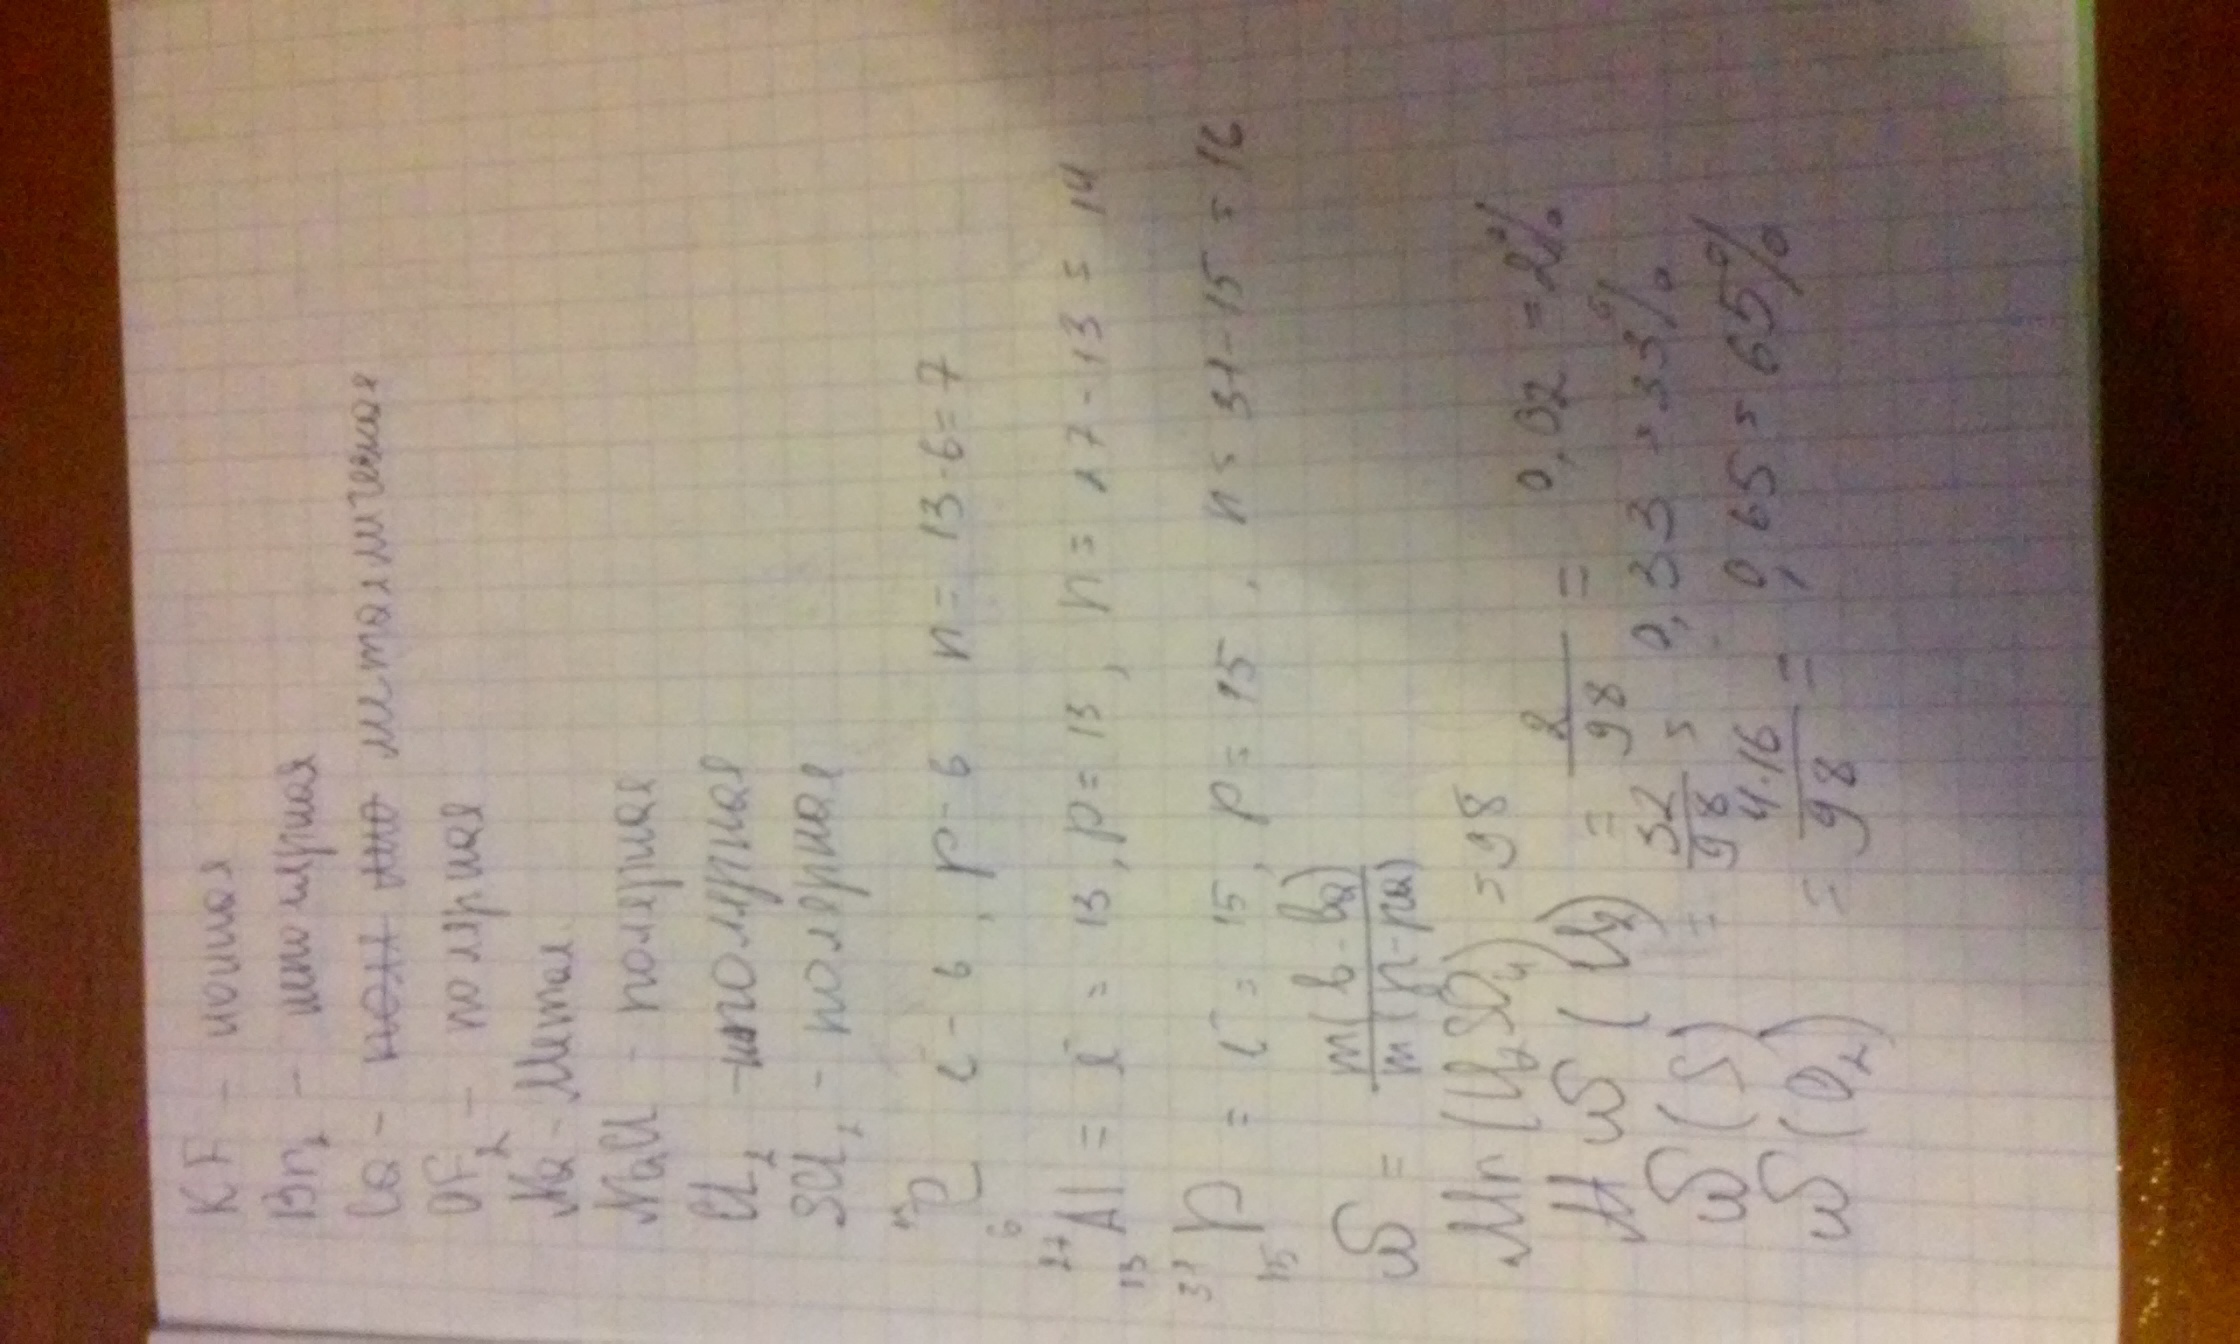 KF - ионная
Br₂ - неполярная
Ca - металлическая
OF₂ - полярная
Na - Метал.
NaCl - полярная
Cl₂ - неполярная
SCl₂ - полярная
¹³₆C e⁻ - 6, p - 6 n = 13-6=7
²⁷₁₃Al = e⁻ = 13, p = 13, n = 27-13 = 14
³¹₁₅P = e⁻ = 15, p = 15, n = 31-15 = 16
ω = m(в-ва)/m(р-ра)
Mr (H₂SO₄) = 98
ω (H₂) = 2/98 = 0,02 = 2%
ω (S) = 32/98 = 0,33 = 33%
ω (O₂) = 4·16/98 = 0,65 = 65%